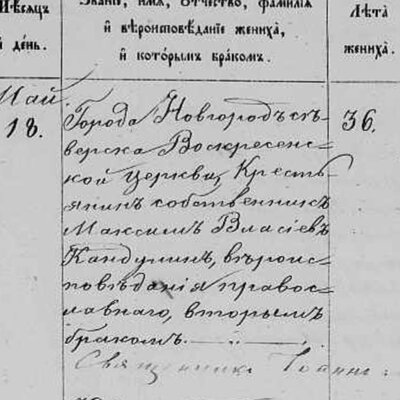 Мѣсяцъ
и день.
Званіе, имя, отчество, фамилія
и вѣроисповѣданіе жениха,
и которымъ бракомъ.
Лѣта
жениха.
Май
18.
Города Новгородсѣ-
верска Воскресен-
ской церкви, Кресть-
янинъ собственникъ
Максимъ Власіевъ
Кандулинъ, вѣроис-
повѣданія право-
славнаго, вторымъ
бракомъ.
36.
Священникъ Іоаннъ